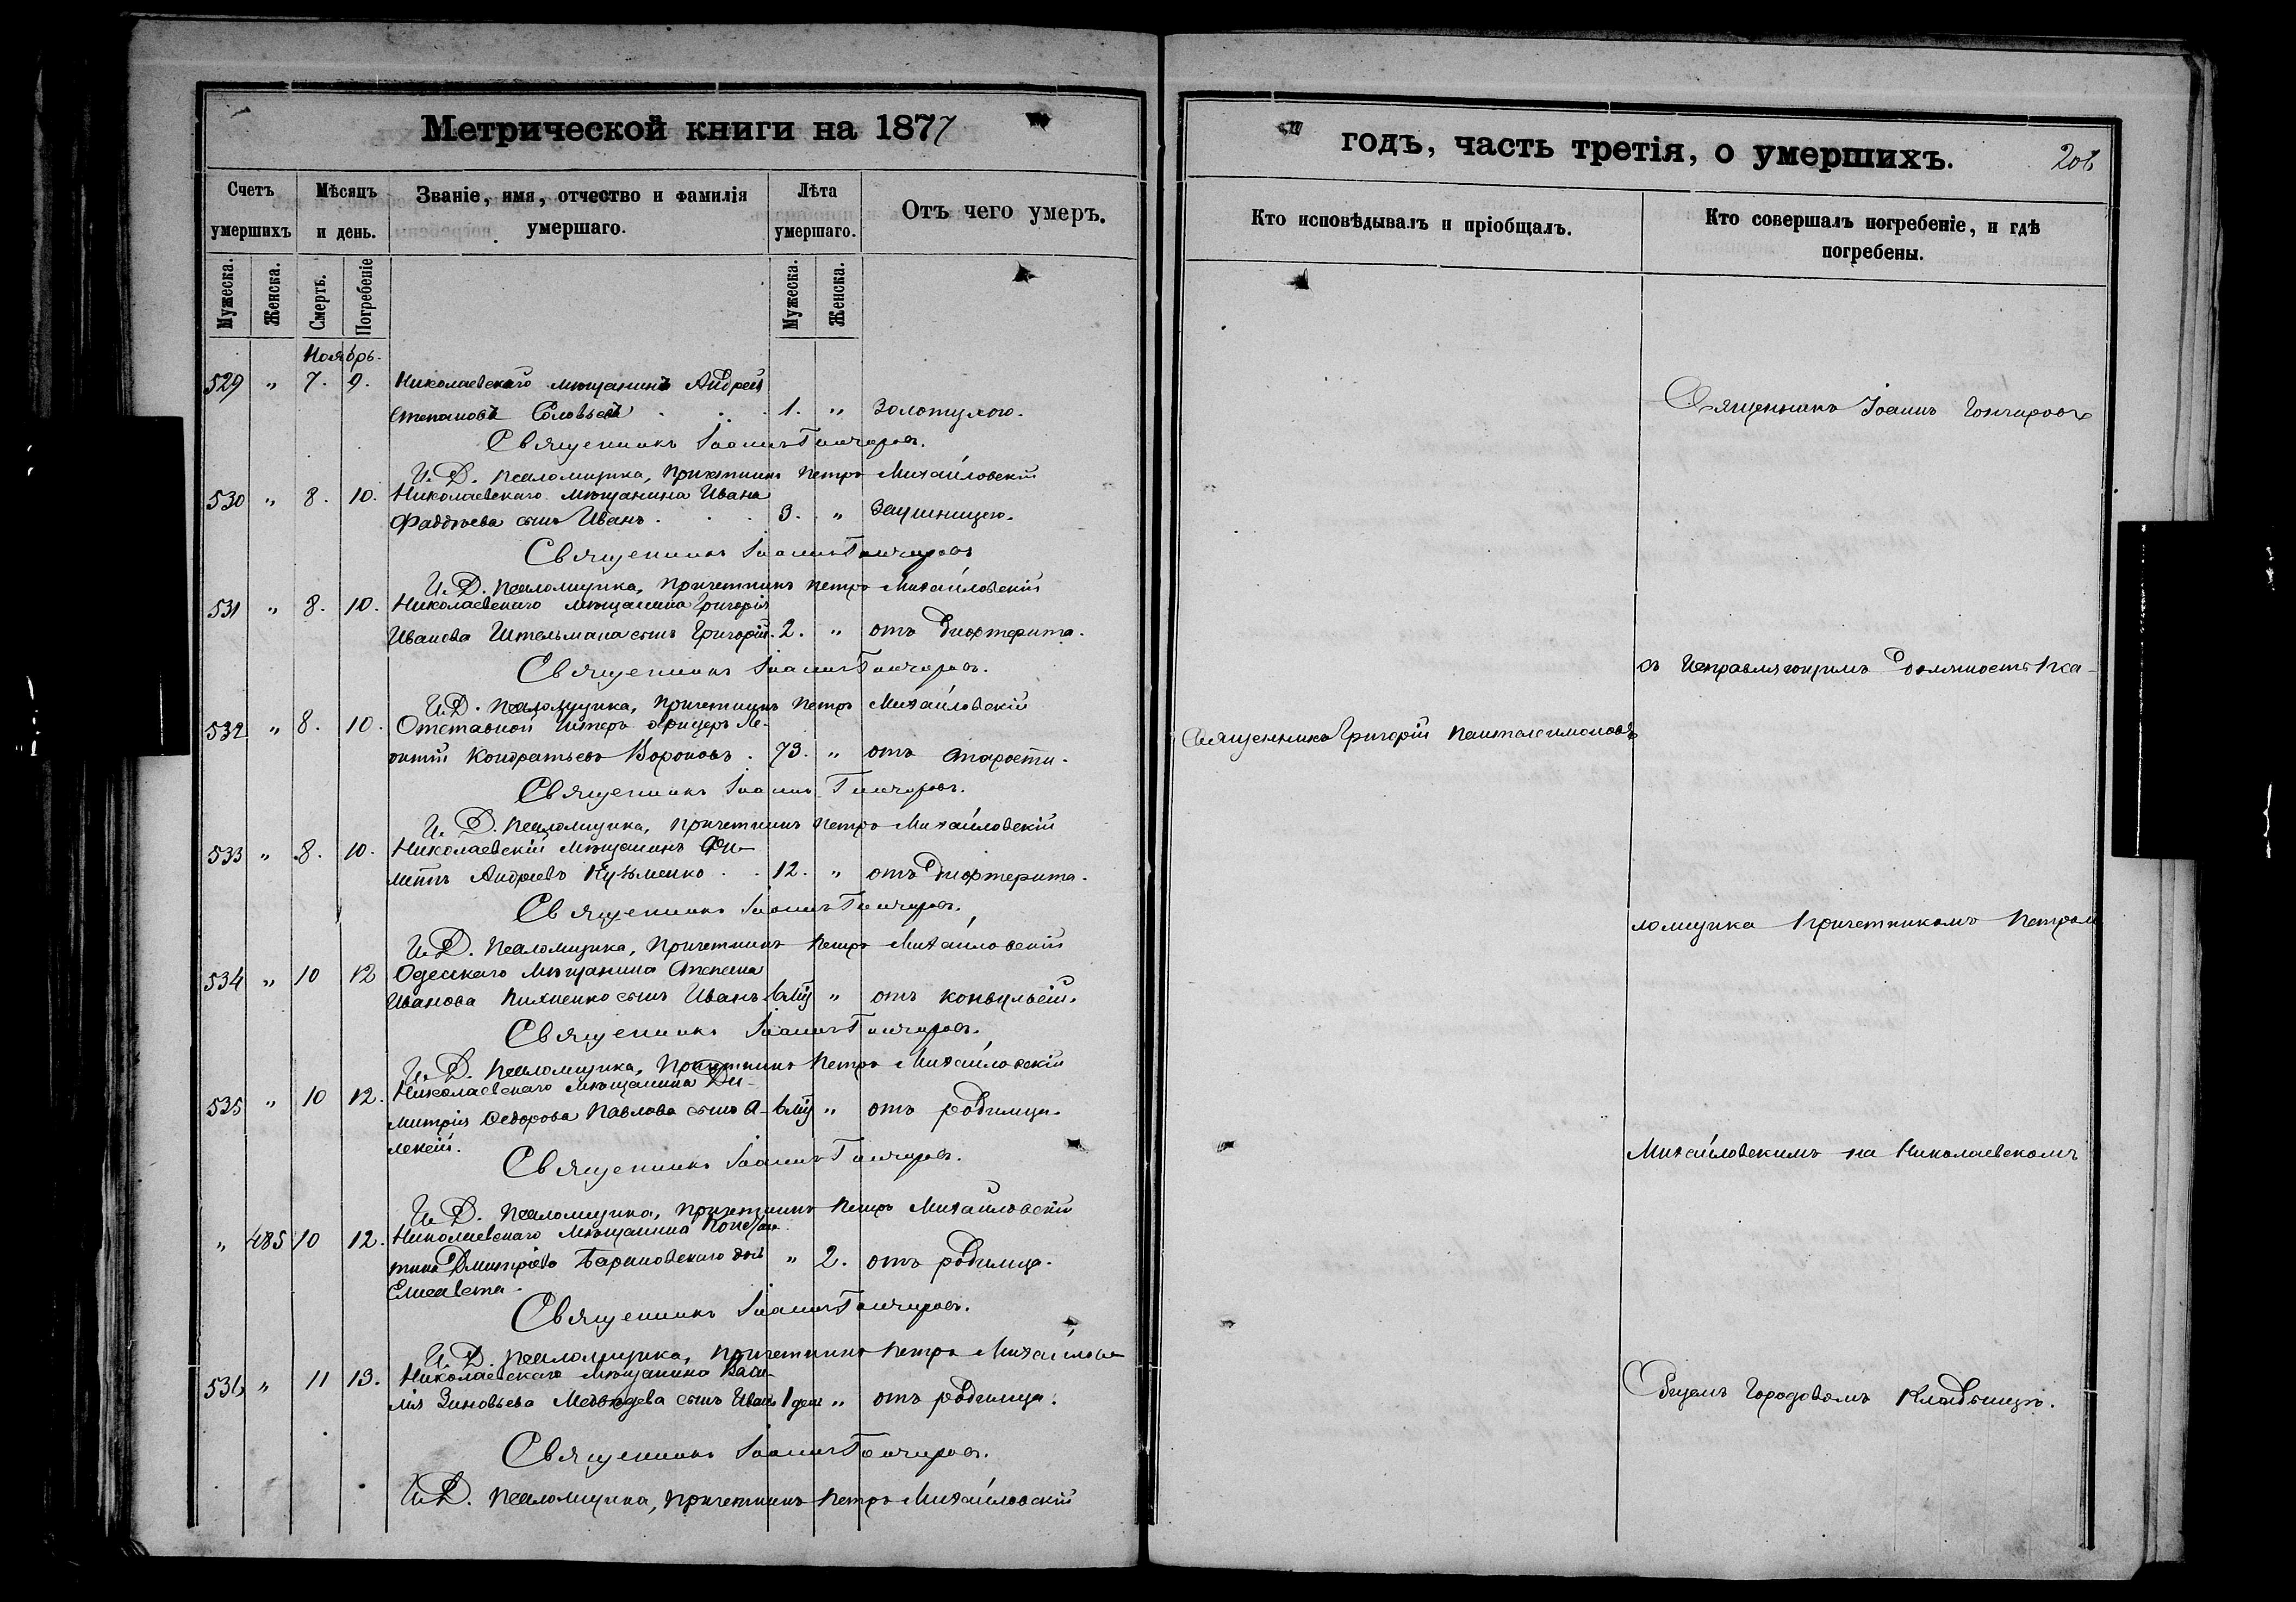 Метрической книги на 1877
Счетъ умершихъ
Мѣсяцъ и день.
Званіе, имя, отчество и фамилія умершаго.
Лѣта умершаго.
Отъ чего умеръ.
Мужеска. Женска. Смерть. Погребеніе Мужеска. Женска.
Ноябрь.
529 „ 7. 9. Николаевскаго мѣщанина Андрея
Степанова Соловьева . . . 1. „ Золотухою.
Священникъ Іоаннъ Гончаровъ.
И. Д. Псаломщика, Причетникъ Петръ Михайловскій
530 „ 8. 10. Николаевскаго мѣщанина Ивана
Фаддѣева сынъ Иванъ . . . 3. „ Заушницею.
Священникъ Іоаннъ Гончаровъ
И. Д. Псаломщика, Причетникъ Петръ Михайловскій
531 „ 8. 10. Николаевскаго мѣщанина Григорія
Иванова Штельмаха сынъ Григорій. 2. „ отъ дифтерита.
Священникъ Іоаннъ Гончаровъ.
И. Д. Псаломщика, Причетникъ Петръ Михайловскій
532 „ 8. 10. Отставной Унтеръ офицеръ Ле-
онтій Кондратьевъ Вороновъ . 73. „ отъ старости.
Священникъ Іоаннъ Гончаровъ.
И. Д. Псаломщика, Причетникъ Петръ Михайловскій
533 „ 8. 10. Николаевскій мѣщанинъ Фи-
Андреевъ Кузьменко . . 12. „ отъ дифтерита.
Священникъ Іоаннъ Гончаровъ.
И. Д. Псаломщика, Причетникъ Петръ Михайловскій
534 „ 10 12 Одесскаго мѣщанина Степана
Иванова сынъ Иванъ „ отъ конвульсій.
Священникъ Іоаннъ Гончаровъ.
И. Д. Псаломщика, Причетникъ Петръ Михайловскій
535 „ 10 12. Николаевскаго мѣщанина Ди-
митрія Федорова Павлова сынъ А- „ отъ родимца.
лексій.
Священникъ Іоаннъ Гончаровъ.
И. Д. Псаломщика, Причетникъ Петръ Михайловскій
„ 485 10 12. Николаевскаго мѣщанина Констан-
тина Дмитріева Барановскаго дочь „ 2. отъ родимца.
Елисавета.
Священникъ Іоаннъ Гончаровъ.
И. Д. Псаломщика, Причетникъ Петръ Михайловс
536 „ 11 13. Николаевскаго мѣщанина Васи-
лія Зиновьева Медвѣдева сынъ Иванъ 1 дня „ отъ родимца.
Священникъ Іоаннъ Гончаровъ.
И. Д. Псаломщика, Причетникъ Петръ Михайловскій
годъ, часть третія, о умершихъ.
206
Кто исповѣдывалъ и пріобщалъ.
Кто совершалъ погребеніе, и гдѣ погребены.
Священникъ Іоаннъ Гончаровъ
съ Исправляющимъ должность Пса-
Священникъ Григорій Пантелеимоновъ
ломщика Причетникомъ Петромъ
Михайловскимъ на Николаевскомъ
Общемъ Городовомъ Кладбищѣ.